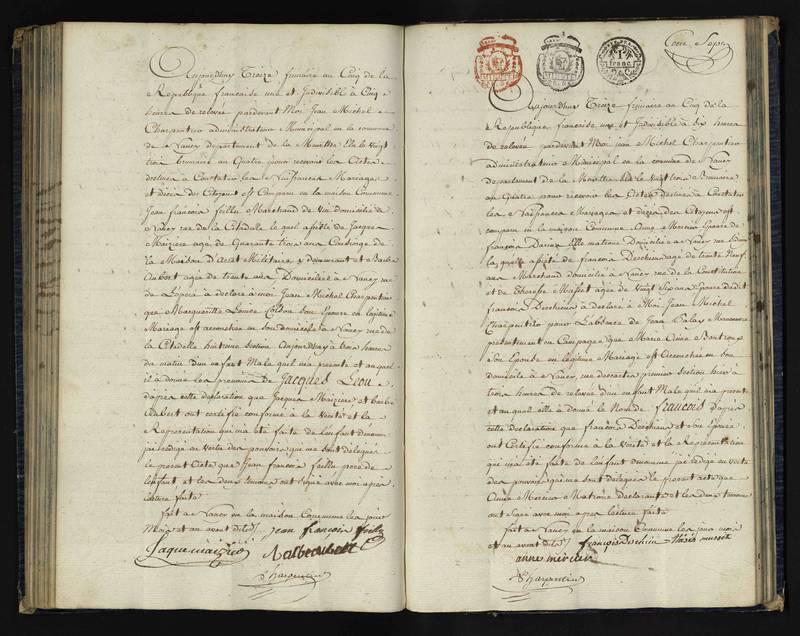 Aujourdhuy Treize frimaire an Cinq de la
Republique francaise une et Indivisible à Cinq
heures de relevée pardevant Moi Jean Michel
Charpentier administrateur Municipal en la commune
de Nancy departement de la Meurthe Elu le vingt
trois brumaire an Quatre pour recevoir les Actes
destinés à Constater les Naissances Mariages
et décès des Citoyens est Comparu en la maison Commune
Jean francois feille Marchand de Vin domicilié à
Nancy rue de la Citadelle lequel assisté de Jacques
Maiziere agé de Quarante trois ans Concierge de
la Maison d'Arret Militaire y demeurant et Barbe
Aubert agée de trente ans Domiciliés à Nancy rue
de à déclaré à moi Jean Michel Charpentier
que Marguerite Louise son Epouse en légitime
Mariage est accouchée en son domicile à Nancy rue de
la Citadelle huitieme Section Aujourdhuy à trois heures
du matin d'un enfant Male quil m'a presenté et auquel
il a donné les prenoms de Jacques Leon
d'après cette déclaration que Jacques Maiziere et barbe
Aubert ont certifié conforme à la Verité et la
Representation qui m'a été faite de l'enfant dénommé
j'ai rédigé en vertu des pouvoirs qui me sont délégués
le present Acte que Jean francois feille pere de
l'enfant et les deux temoins ont signé avec moi après
lecture faite
fait à Nancy en la maison Commune les jour
Mois et an avant dits jean françois feille
Jaque maizier Barbe aubert
Charpentier
1 franc
Aujourdhuy Treize frimaire an Cinq de la
Republique francaise une et Indivisible à Six heures
de relevée pardevant Moi jean Michel Charpentier
administrateur Municipal en la commune de Nancy
departement de la Meurthe Elu le vingt trois Brumaire
an Quatre pour recevoir les Actes destinés à Constater
les Naissances Mariages et décès des Citoyens est
comparu en la maison Commune Anne Mercier Epouse de
françois Matrone Domiciliée à Nancy rue
laquelle assistée de francois Deschien agé de trente Neuf
ans Marchand domicilié à Nancy rue de la Constitution
et de Therese Musset agée de Vingt Sept ans Epouse dudit
francois Deschiens à déclaré à Moi Jean Michel
Charpentier pour l'absence de Jean
presentement en Campagne que Marie Anne
son Epouse en légitime Mariage est Accouchée en son
domicile à Nancy, rue descartes premiere Section hier à
trois heures de relevée d'un enfant Male quil m'a presenté
et auquel elle a donné le Nom de françois D'après
cette déclaration que francois Deschiens et son Epouse
ont Certifié conforme à la Verité et la Representation
qui m'a été faite de l'enfant dénommé j'ai rédigé en vertu
des pouvoirs qui me sont délégués le present acte que
Anne Mercier Matrone declarante et les deux temoins
ont Signé avec moi apres lecture faite
fait à Nancy en la maison Commune les jour mois
et an avant dits françois Deschien Therés musset
anne mercier
Charpentier